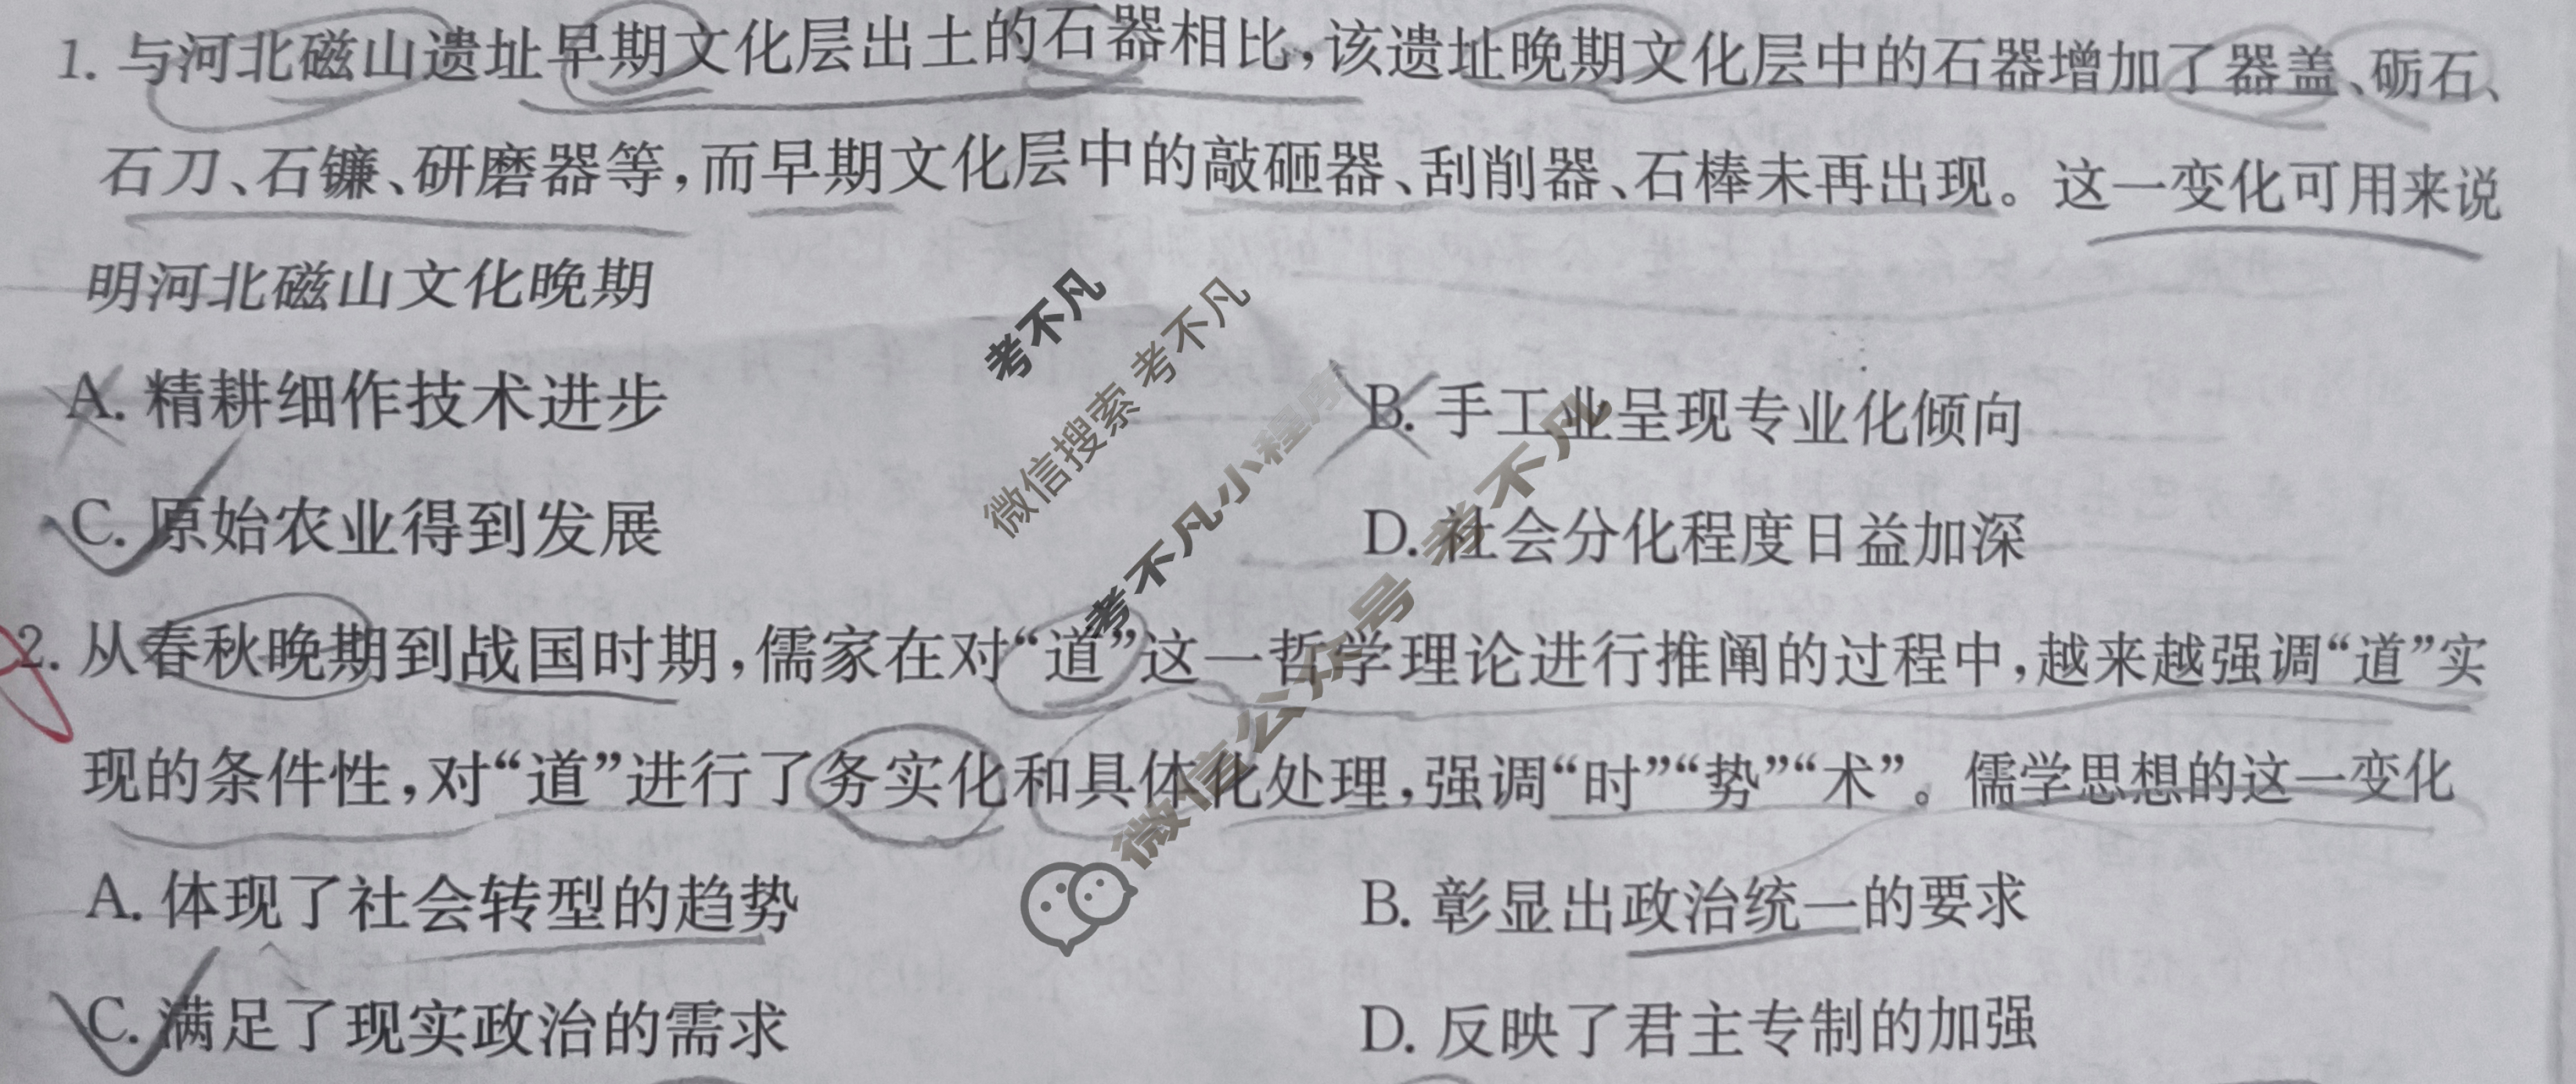 1. 与河北磁山遗址早期文化层出土的石器相比,该遗址晚期文化层中的石器增加了器盖、砺石、
石刀、石镰、研磨器等,而早期文化层中的敲砸器、刮削器、石棒未再出现。这一变化可用来说
明河北磁山文化晚期
A. 精耕细作技术进步
B. 手工业呈现专业化倾向
C. 原始农业得到发展
D. 社会分化程度日益加深
2. 从春秋晚期到战国时期,儒家在对“道”这一哲学理论进行推阐的过程中,越来越强调“道”实
现的条件性,对“道”进行了务实化和具体化处理,强调“时”“势”“术”。儒学思想的这一变化
A. 体现了社会转型的趋势
B. 彰显出政治统一的要求
C. 满足了现实政治的需求
D. 反映了君主专制的加强
考不凡
微信搜索 考不凡
考不凡小程序
微信公众号 考不凡